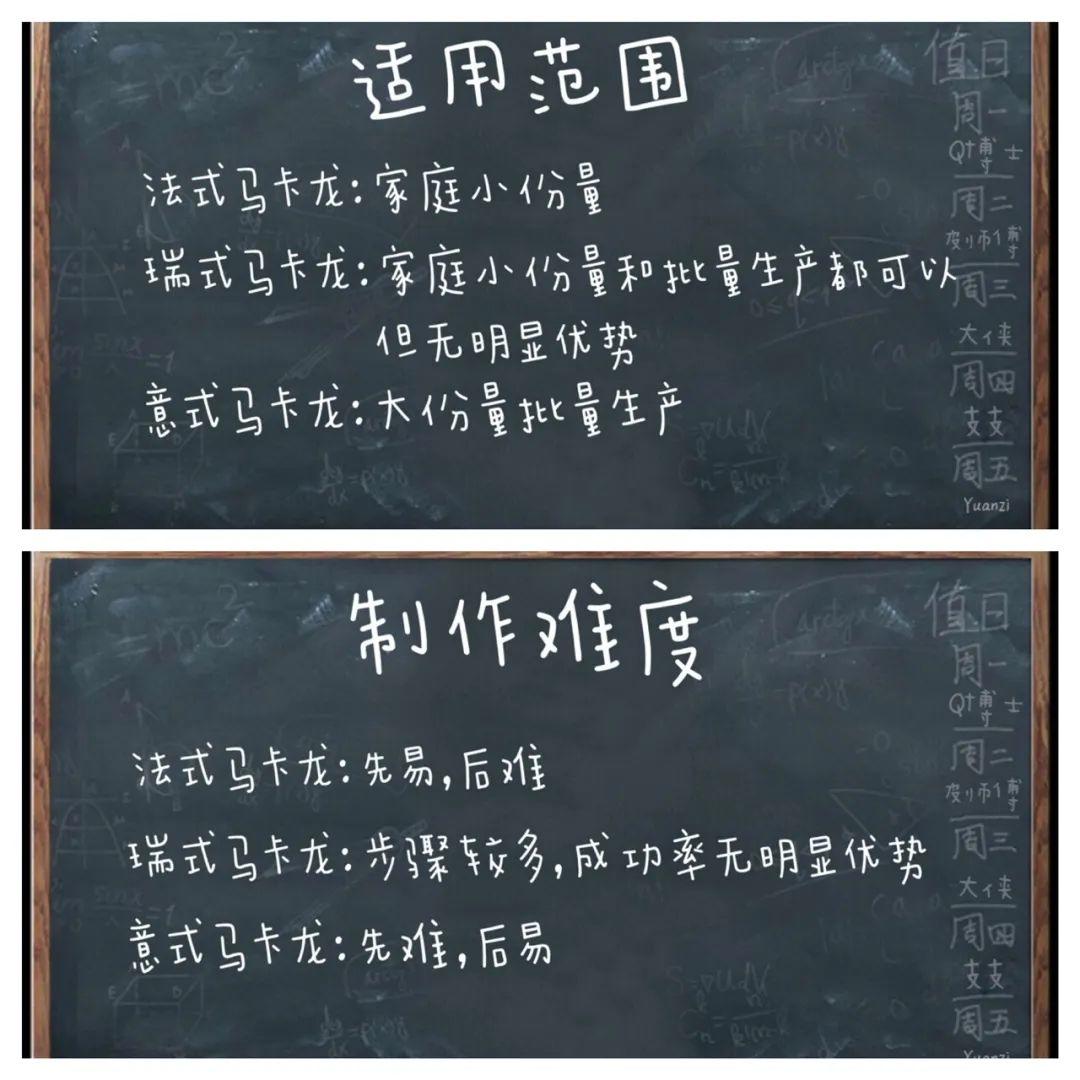 适用范围
法式马卡龙:家庭小份量
瑞式马卡龙:家庭小份量和批量生产都可以
但无明显优势
意式马卡龙:大份量批量生产
值日
周一
周二
周三
大侠
周四
周五
Yuanzi
制作难度
法式马卡龙:先易,后难
瑞式马卡龙:步骤较多,成功率无明显优势
意式马卡龙:先难,后易
值日
周一
周二
周三
大侠
周四
周五
Yuanzi